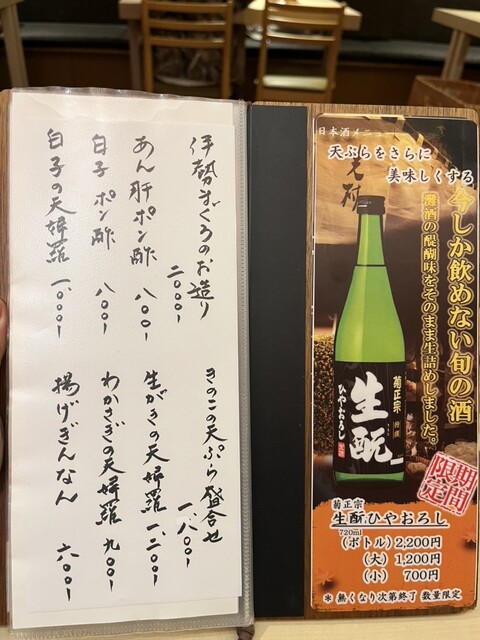 伊勢まぐろのお造り
二〇〇〇-
あん肝ポン酢 八〇〇-
白子ポン酢 八〇〇-
白子の天婦羅 一、〇〇〇-
きのこの天ぷら盛合せ
一、八〇〇-
生がきの天婦羅 一、二〇〇-
わかさぎの天婦羅 九〇〇-
揚げぎんなん 六〇〇-
日本酒メニュー
天ぷらをさらに
美味しくする
今しか飲めない旬の酒
灘酒の醍醐味をそのまま生詰めしました。
菊正宗
生酛
ひやおろし
期間
限定
菊正宗
生酛ひやおろし
720ml
(ボトル) 2,200円
(大) 1,200円
(小) 700円
＊無くなり次第終了 数量限定